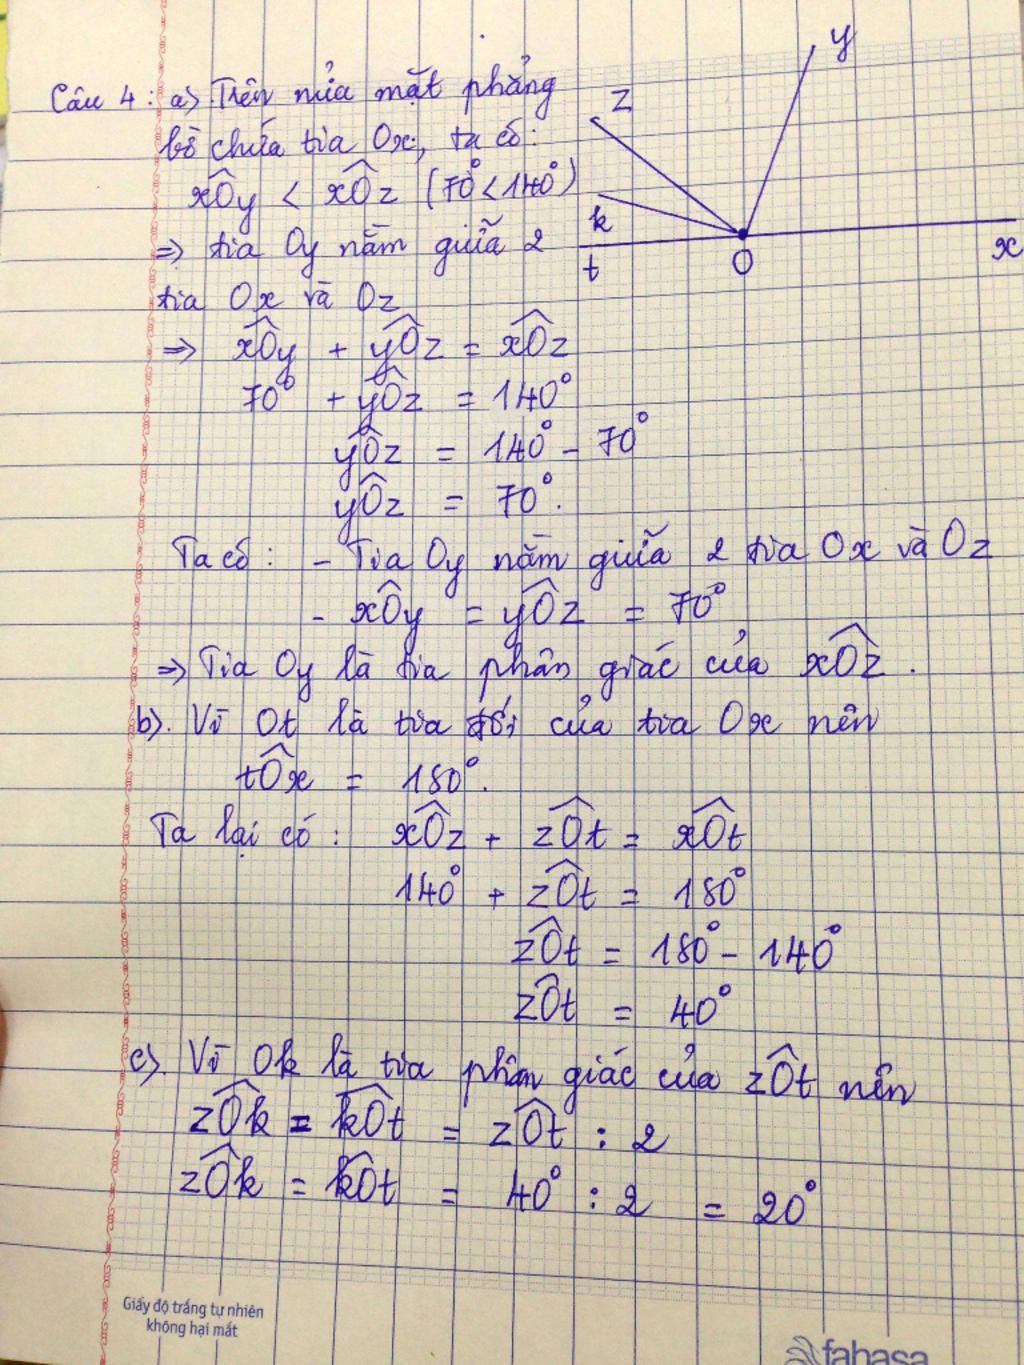 Câu 4: a) Trên nửa mặt phẳng
bờ chứa tia Ox, ta có:
xÔy < xÔz (70° < 140°)
=> tia Oy nằm giữa 2
tia Ox và Oz
=> xÔy + yÔz = xÔz
70° + yÔz = 140°
yÔz = 140° - 70°
yÔz = 70°.
Ta có: - Tia Oy nằm giữa 2 tia Ox và Oz
- xÔy = yÔz = 70°
=> Tia Oy là tia phân giác của xÔz.
b). Vì Ot là tia đối của tia Ox nên
tÔx = 180°.
Ta lại có: xÔz + zÔt = xÔt
140° + zÔt = 180°
zÔt = 180° - 140°
zÔt = 40°
c). Vì Ok là tia phân giác của zÔt nên
zÔk = kÔt = zÔt : 2
zÔk = kÔt = 40° : 2 = 20°
y
z
k
t
O
x
Giấy độ trắng tự nhiên
không hại mắt
fahasa